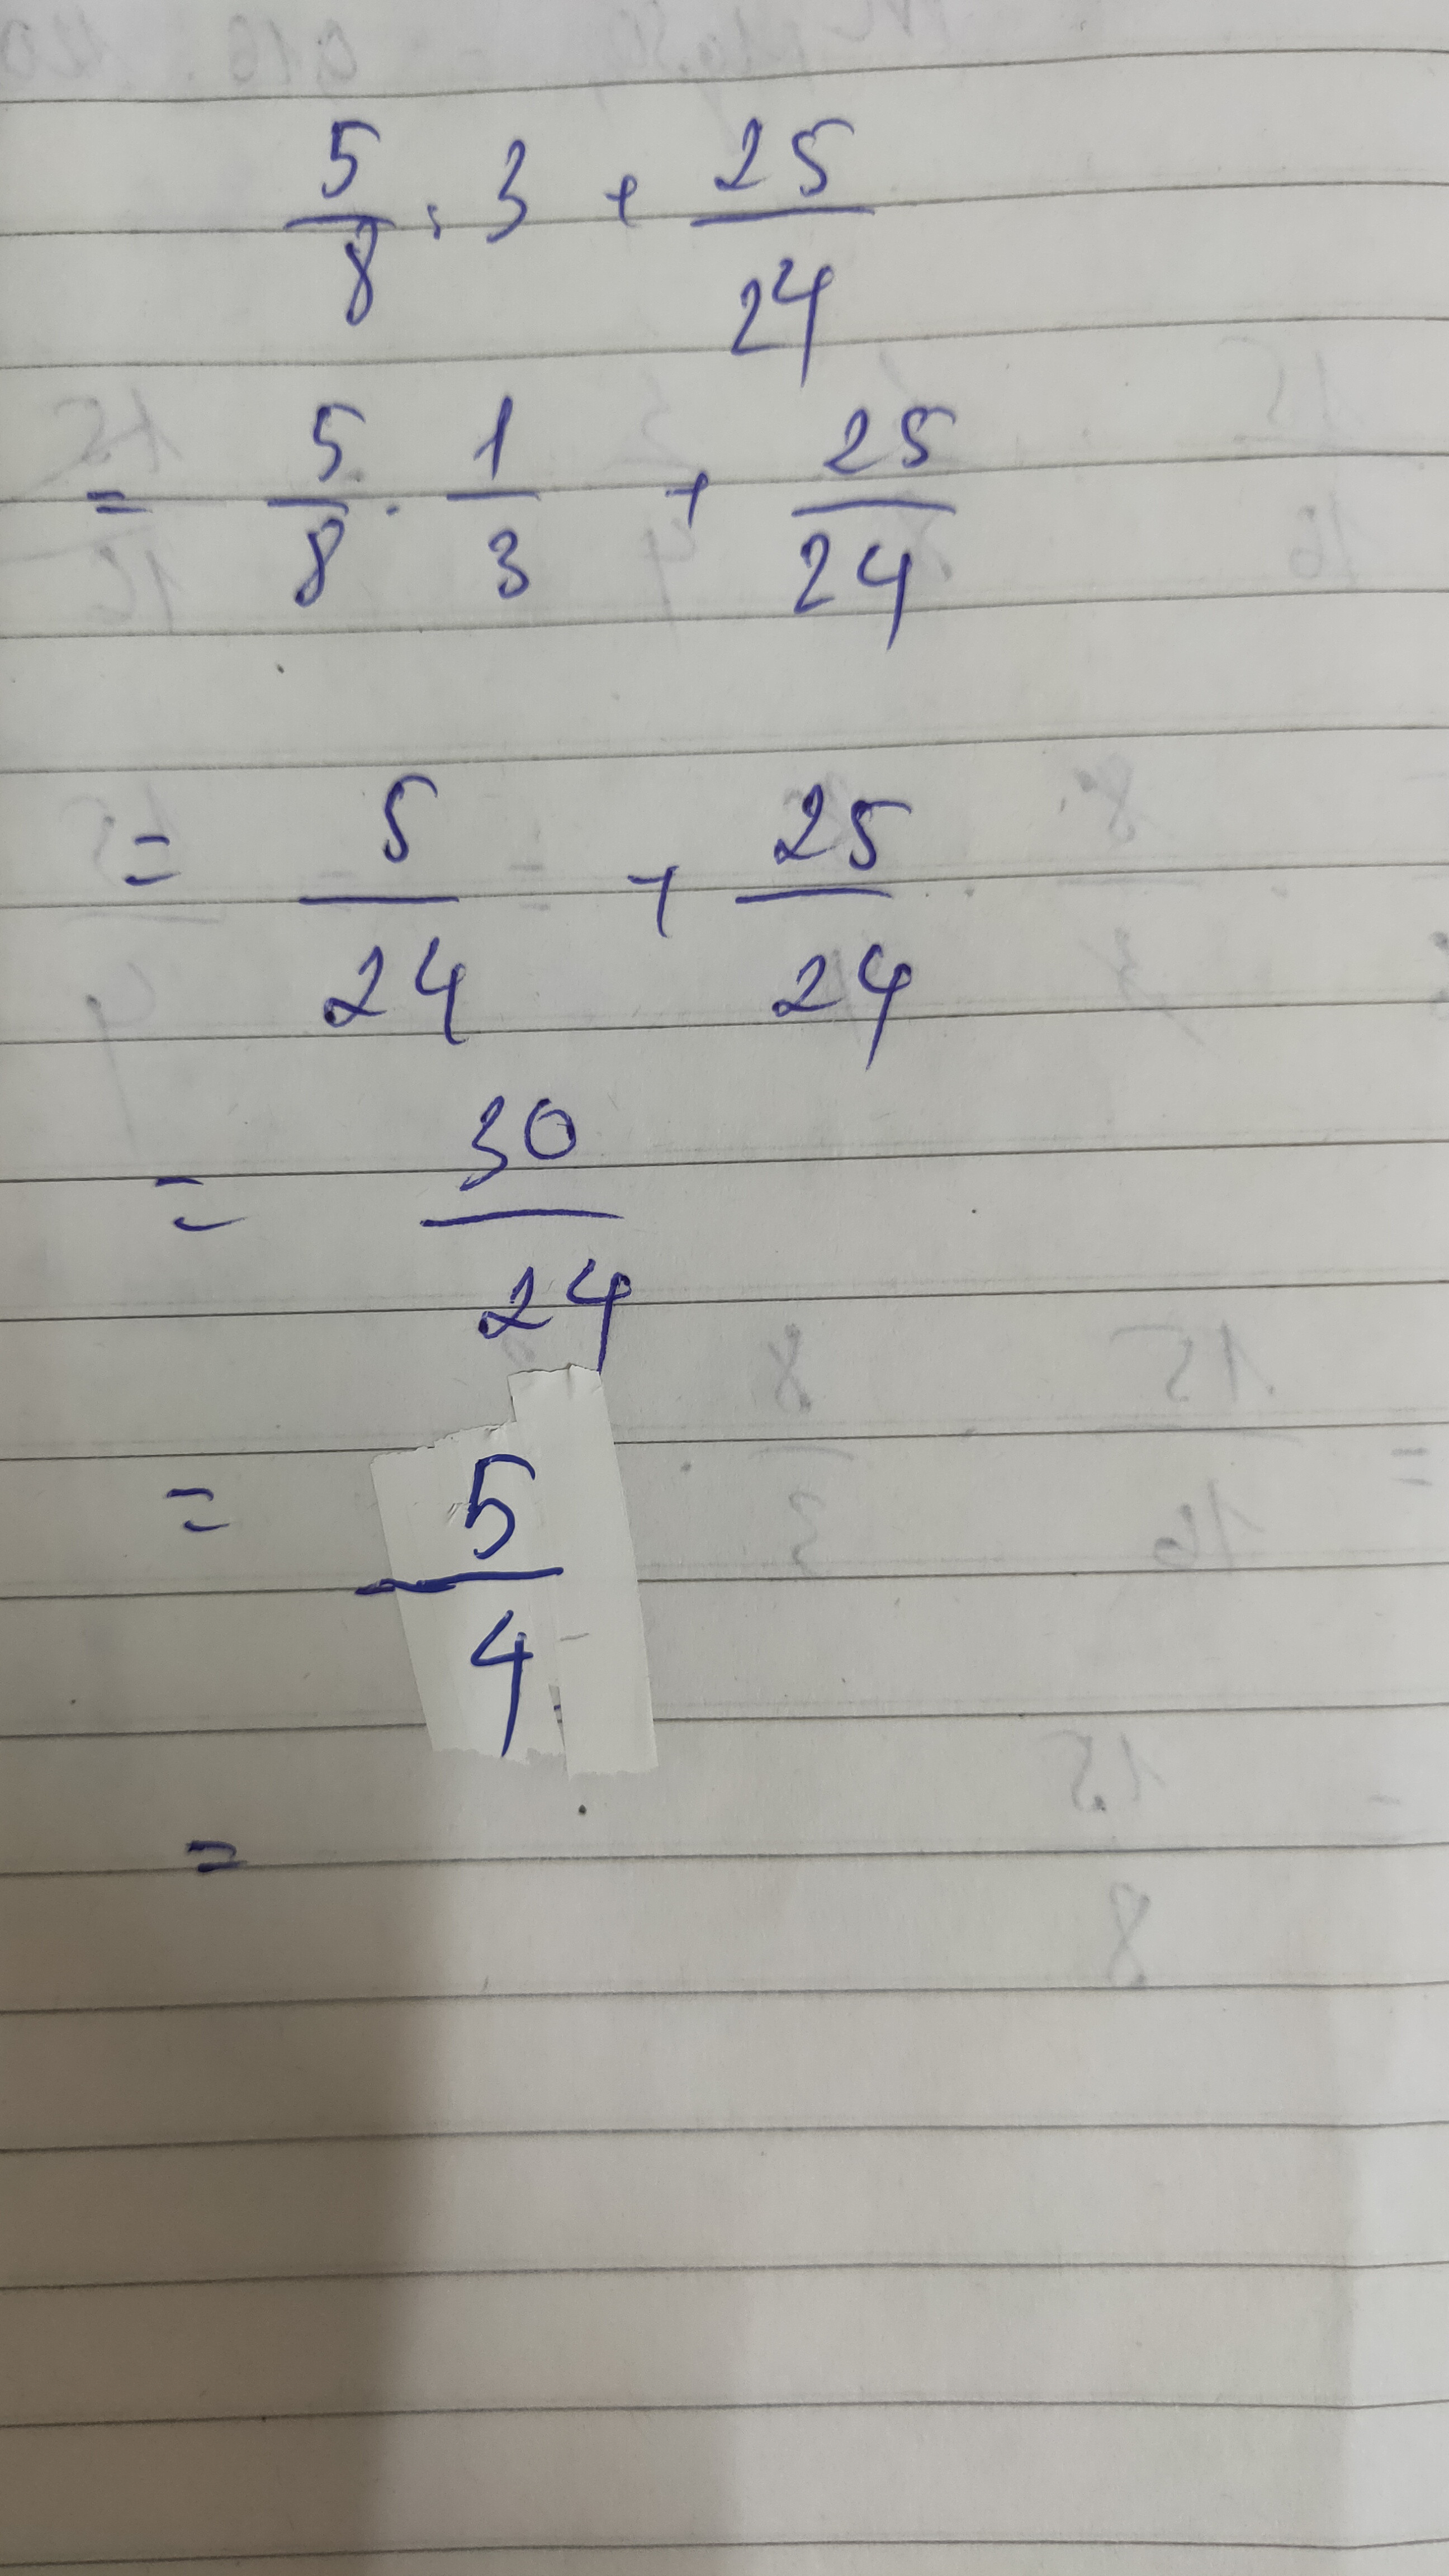 5/8 : 3 + 25/24
= 5/8 . 1/3 + 25/24
= 5/24 + 25/24
= 30/24
= 5/4
=